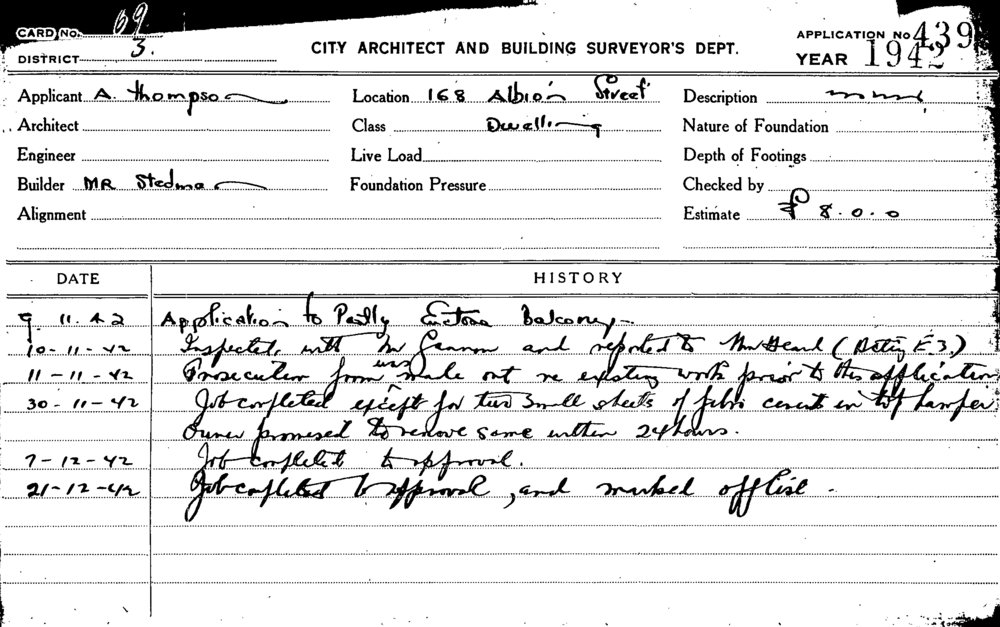 CARD NO. 69
DISTRICT 3.
CITY ARCHITECT AND BUILDING SURVEYOR'S DEPT.
APPLICATION NO 439
YEAR 1942
Applicant A. Thompson Location 168 Albion Street Description
Architect Class Dwelling Nature of Foundation
Engineer Live Load Depth of Footings
Builder MR Stedman Foundation Pressure Checked by
Alignment Estimate £8.0.0
DATE HISTORY
9 11. 42 Application to Partly Enclose Balcony
10-11-42 Inspected with Mr Gannon and reported to Mr Heard ( E.3)
11-11-42 Prosecution form was made out re existing work prior to this application
30-11-42 Job completed except for two small sheets of fibro cement in top hamper
Owner promised to remove same within 24 hours.
7-12-42 Job completed to approval.
21-12-42 Job completed to approval, and marked off list.